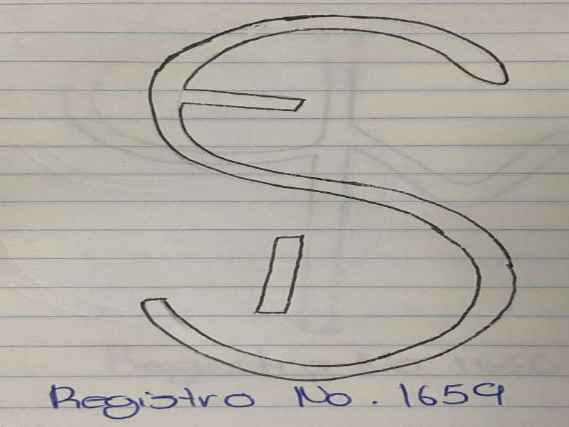 Registro No. 1659